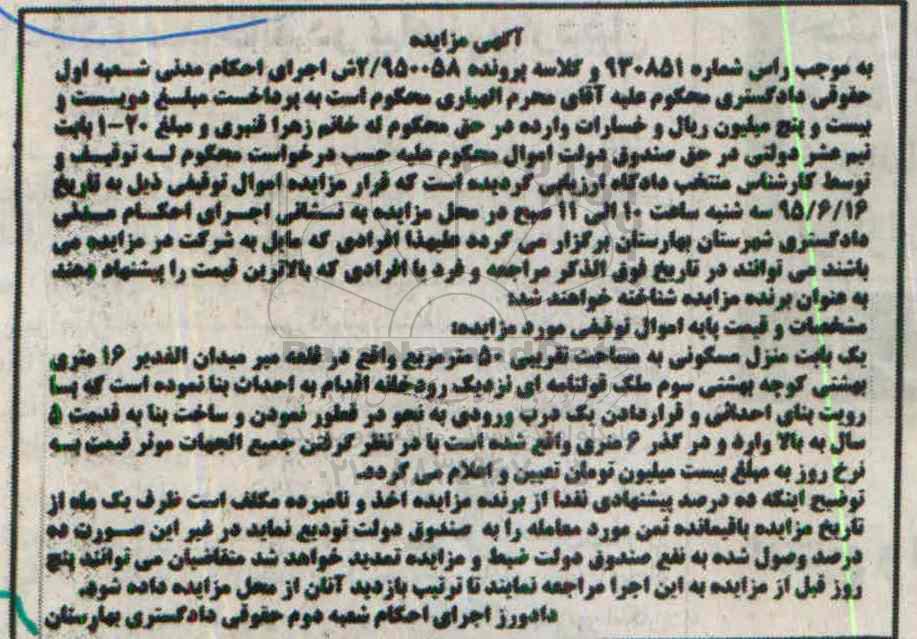 آگهی مزایده
به موجب راس شماره ۹۳۰۸۵۱ و کلاسه پرونده ۲/۹۵۰۰۵۸ش اجرای احکام مدنی شعبه اول
حقوقی دادگستری محکوم علیه آقای محرم الهیاری محکوم است به پرداخت مبلغ دویست و
بیست و پنج میلیون ریال و خسارات وارده در حق محکوم له خانم زهرا قنبری و مبلغ ۲۰-۱ بابت
نیم عشر دولتی در حق صندوق دولت اموال محکوم علیه حسب درخواست محکوم له توقیف و
توسط کارشناس منتخب دادگاه ارزیابی گردیده است که قرار مزایده اموال توقیفی ذیل به تاریخ
۹۵/۶/۱۶ سه شنبه ساعت ۱۰ الی ۱۱ صبح در محل مزایده به نشانی اجرای احکام مدنی
دادگستری شهرستان بهارستان برگزار می گردد علیهذا افرادی که مایل به شرکت در مزایده می
باشند می توانند در تاریخ فوق الذکر مراجعه و فرد یا افرادی که بالاترین قیمت را پیشنهاد دهند
به عنوان برنده مزایده شناخته خواهند شد:
مشخصات و قیمت پایه اموال توقیفی مورد مزایده:
یک بابت منزل مسکونی به مساحت تقریبی ۵۰ مترمربع واقع در قلعه میر میدان الغدیر ۱۶ متری
بهشتی کوچه بهشتی سوم ملک قولنامه ای نزدیک رودخانه اقدام به احداث بنا نموده است که با
رویت بنای احداثی و قراردادن یک درب ورودی به نحو در قطور نمودن و ساخت بنا به قدمت ۵
سال به بالا وارد و در گذر ۶ متری واقع شده است با در نظر گرفتن جمیع الجهات موثر قیمت به
نرخ روز به مبلغ بیست میلیون تومان تعیین و اعلام می گردد.
توضیح اینکه ده درصد پیشنهادی نقدا از برنده مزایده اخذ و نامبرده مکلف است ظرف یک ماه از
تاریخ مزایده باقیمانده ثمن مورد معامله را به صندوق دولت تودیع نماید در غیر این صورت ده
درصد وصول شده به نفع صندوق دولت ضبط و مزایده تمدید خواهد شد متقاضیان می توانند پنج
روز قبل از مزایده به این اجرا مراجعه نمایند تا ترتیب بازدید آنان از محل مزایده داده شود.
دادورز اجرای احکام شعبه دوم حقوقی دادگستری بهارستان